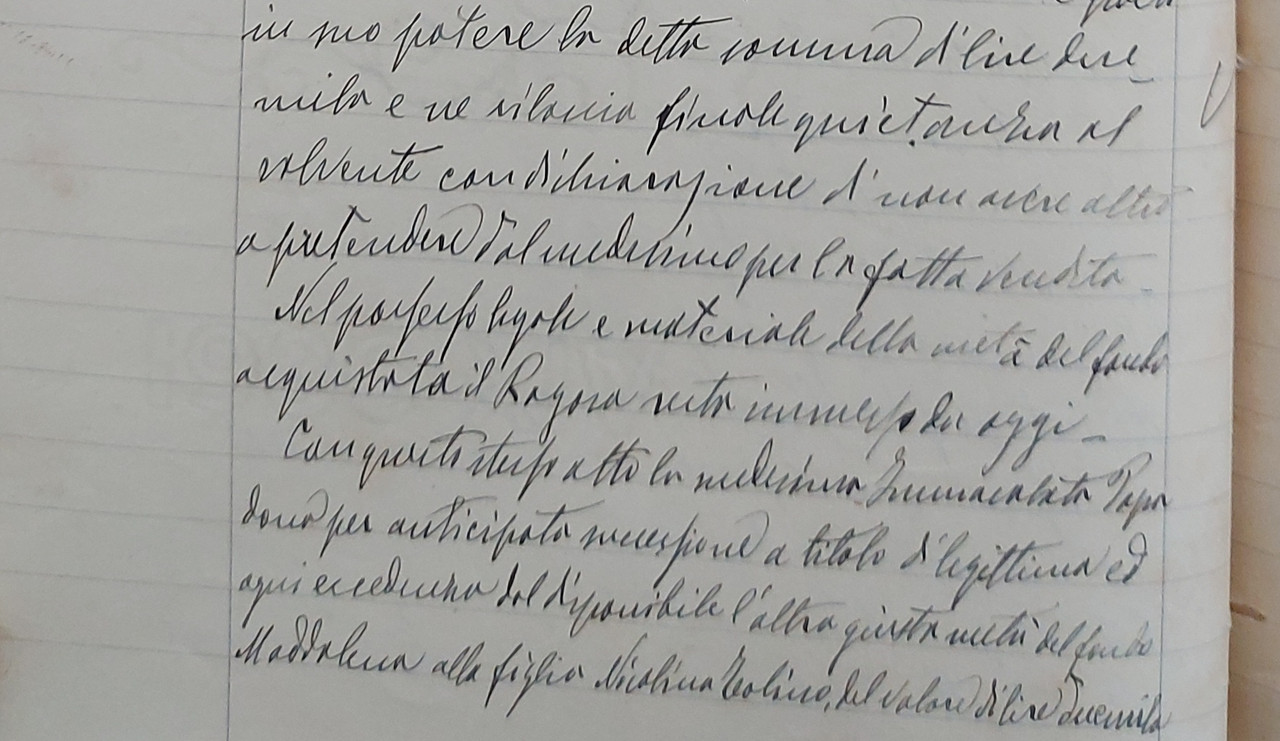 in suo potere la detta somma di lire due-
mila e ne rilascia finale quietanza al
solvente con dichiarazione di non avere altro
a pretendere dal medesimo per la fatta vendita-
Nel possesso legale e materiale della metà del fondo
acquistata il Ragosa resta immesso da oggi-
Con questo stesso atto la medesima Immacolata Papa
dona per anticipata successione a titolo di legittima ed
ogni eccedenza dal disponibile l'altra giusta metà del fondo
Maddalena alla figlia Nicolina Iolino, del valore di lire duemila